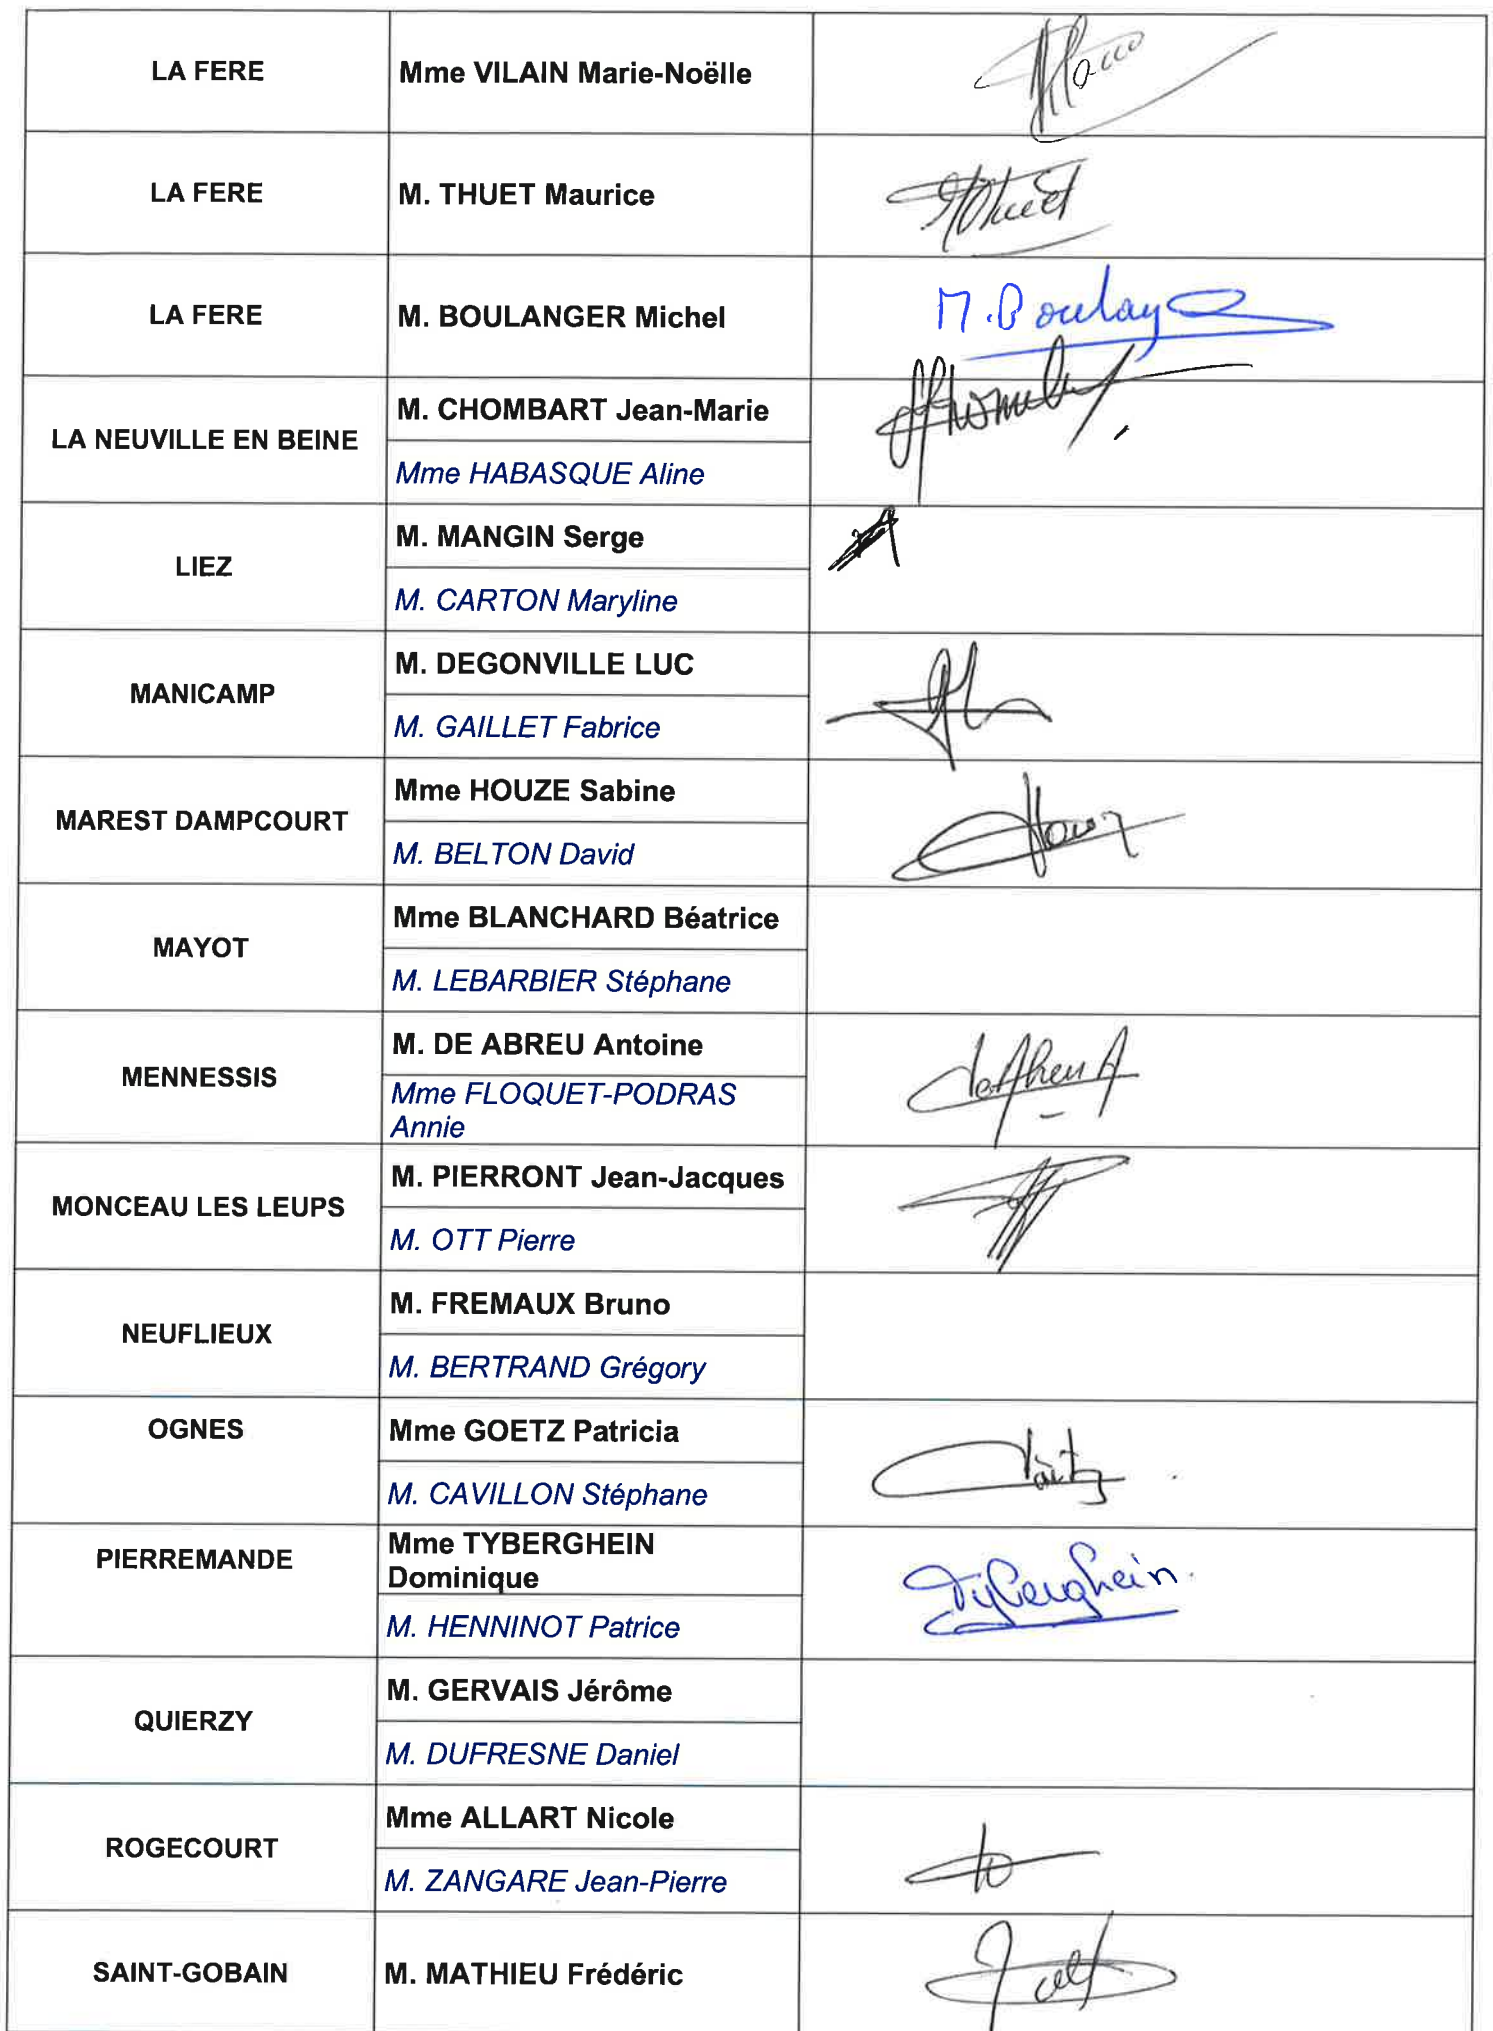 LA FERE
Mme VILAIN Marie-Noëlle
LA FERE
M. THUET Maurice
Thuet
LA FERE
M. BOULANGER Michel
M. Boulang
LA NEUVILLE EN BEINE
M. CHOMBART Jean-Marie
Mme HABASQUE Aline
LIEZ
M. MANGIN Serge
M. CARTON Maryline
MANICAMP
M. DEGONVILLE LUC
M. GAILLET Fabrice
MAREST DAMPCOURT
Mme HOUZE Sabine
M. BELTON David
MAYOT
Mme BLANCHARD Béatrice
M. LEBARBIER Stéphane
MENNESSIS
M. DE ABREU Antoine
Mme FLOQUET-PODRAS
Annie
MONCEAU LES LEUPS
M. PIERRONT Jean-Jacques
M. OTT Pierre
NEUFLIEUX
M. FREMAUX Bruno
M. BERTRAND Grégory
OGNES
Mme GOETZ Patricia
M. CAVILLON Stéphane
PIERREMANDE
Mme TYBERGHEIN
Dominique
M. HENNINOT Patrice
Tyberghein
QUIERZY
M. GERVAIS Jérôme
M. DUFRESNE Daniel
ROGECOURT
Mme ALLART Nicole
M. ZANGARE Jean-Pierre
SAINT-GOBAIN
M. MATHIEU Frédéric